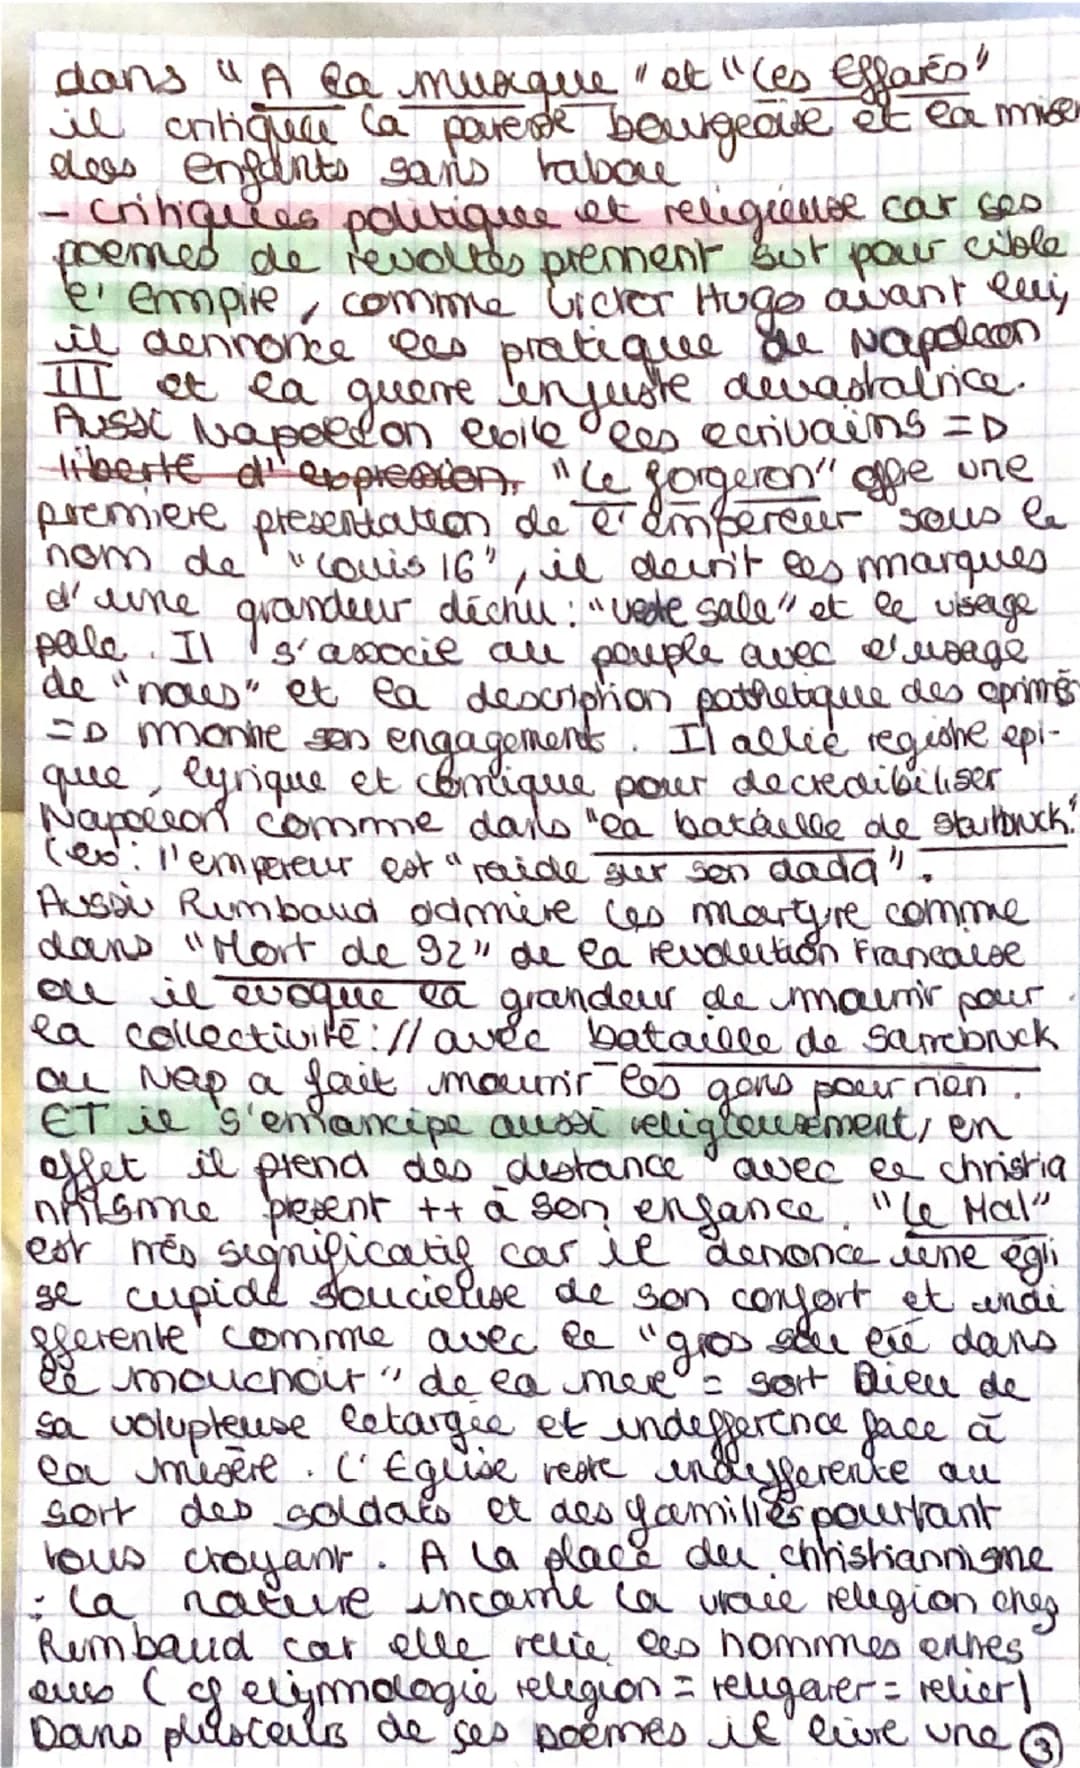 dans "A la musique" et "Les Effarés"
il critique la paresse bourgeoise et la miser
des enfants sans tabou
- critiques politique et religieuse car ses
poemes de revoltes prennent surt pour cible
l'empire, comme Victor Hugo avant lui,
il dennonce les pratique de Napoleon
III et la guerre injuste devastatrice.
Aussi Napoleon exile les ecrivains =D
liberté d'expression. "Le forgeron" offre une
premiere presentation de l'empereur sous le
nom de "Louis 16", il decrit les marques
d'une grandeur déchu : "veste sale" et le visage
pale. Il s'associe au peuple avec l'usage
de "nous" et la description pathetique des oprimés
=D montre son engagement. Il allie registre epi-
que, lyrique et comique pour decredibiliser
Napoleon comme dans "la bataille de Starbruck"
(ex: l'empereur est "raide sur son dada".
Aussi Rimbaud admire les martyre comme
dans "Mort de 92" de la revolution Francaise
ou il evoque la grandeur de mourir pour
la collectivité : // avec bataille de Sarrebruck
ou Nap a fait mourrir les gens pour rien.
ET il s'emancipe aussi religieusement, en
effet il prend des distance avec le christia
nnisme present ++ à son enfance. "Le Mal"
est très significatif car il denonce une egli
se cupide soucieuse de son confort et indi
fferente comme avec le "gros sou lié dans
le mouchoir" de la mere = sort Dieu de
sa volupteuse letargie et indefference face à
la misère. L'Eglise reste indifferente au
sort des soldats et des familles pourtant
tous croyant. A la place du christiannisme
: La nature incarne la vraie religion chez
Rimbaud car elle relie les hommes entres
eux (cf etymologie religion = religarer = relier)
Dans plusieurs de ses poèmes il livre une 3